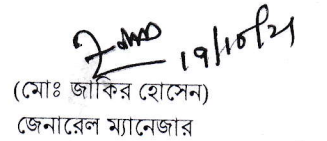 19/10/21
(মোঃ জাকির হোসেন)
জেনারেল ম্যানেজার